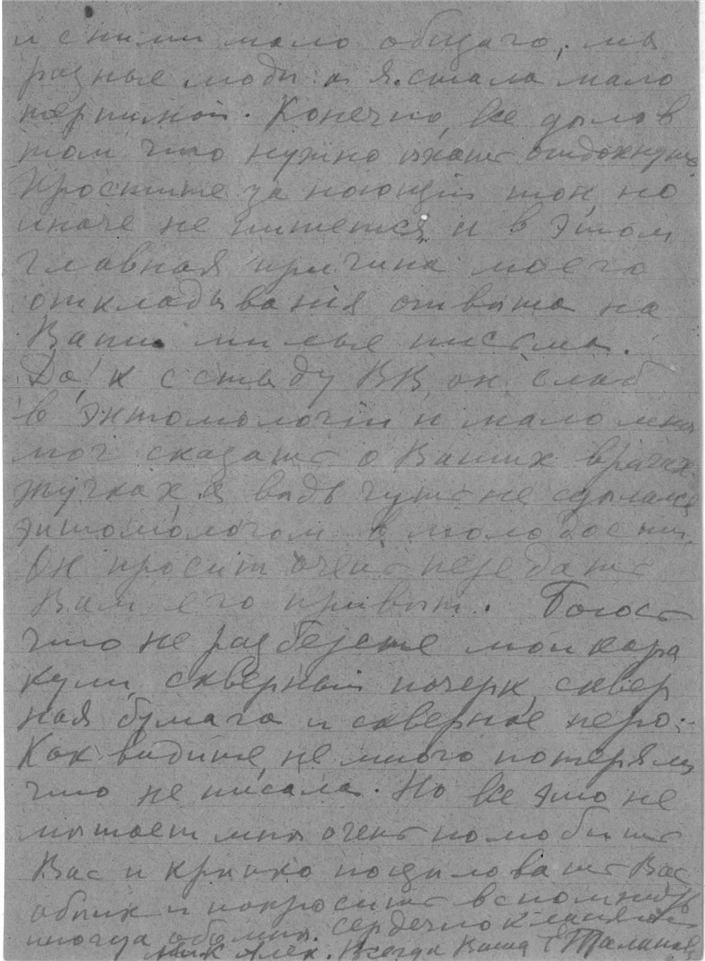 и с ними мало общаго, мы
разные люди а я стала мало
терпимой. Конечно, все дѣло в
том что нужно отдохнуть
Простите за ноющій тон, но
иначе не пишется, и в этом
главная причина моего
откладыванія отвѣта на
Ваши милые письма.
Да, к стыду ВВ, он слаб
в энтомологіи и мало мнѣ
мог сказать о Ваших врагах
жучках а вѣдь чуть не сдѣлался
энтомологом в молодости.
Он просит очень передать
Вам его привѣт. Боюсь
что не разберете мои кара
кули, скверный почерк, сквер
ная бумага и скверное перо.
Как видите, не много потеряли
что не писала. Но все это не
мѣшает мнѣ очень полюбить
Вас и крѣпко поцѣловать Вас
обѣих и попросить вспомнить
иногда обо мнѣ. Сердечно кланяюсь
Ник Алек. Всегда Ваша